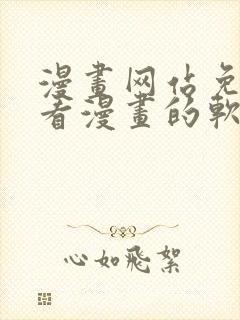 漫畫网佔免
看漫畫的軟
心如飛絮